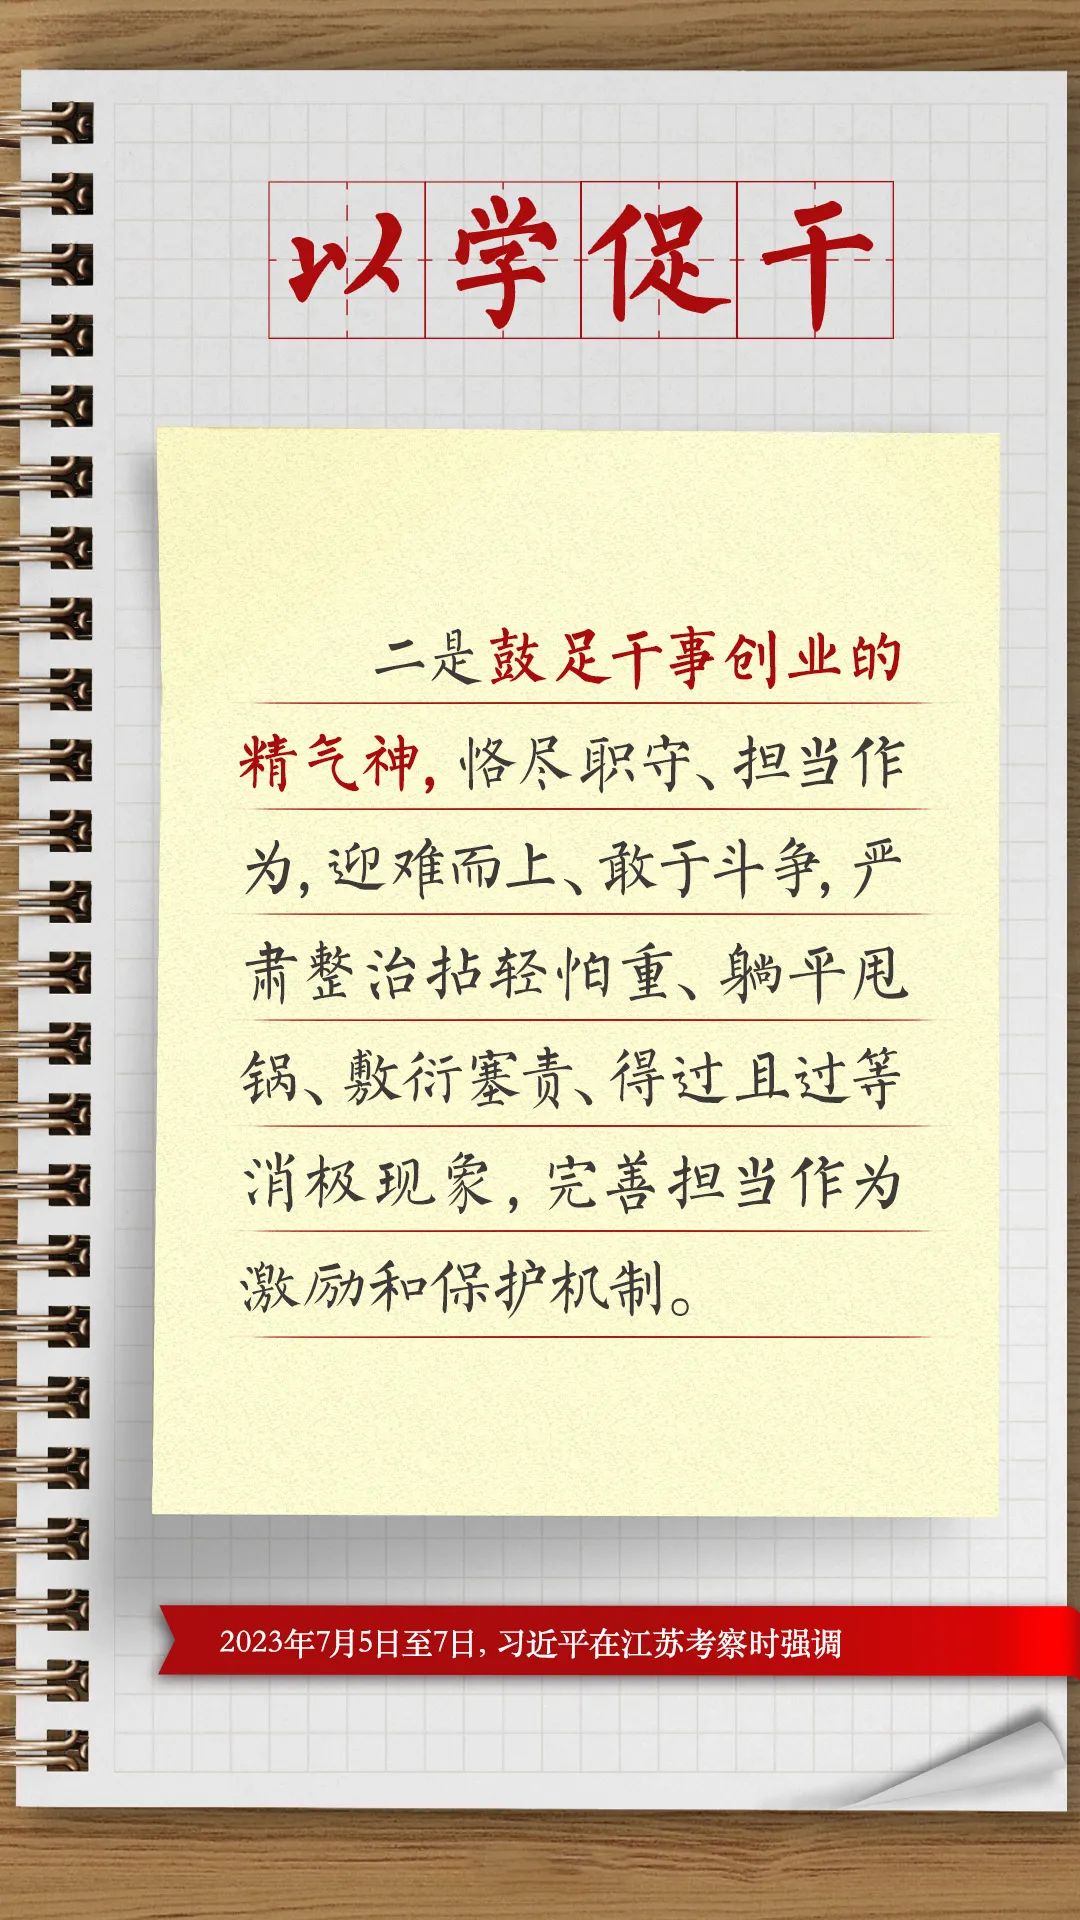 以学促干
二是鼓足干事创业的
精气神，恪尽职守、担当作
为，迎难而上、敢于斗争，严
肃整治拈轻怕重、躺平甩
锅、敷衍塞责、得过且过等
消极现象，完善担当作为
激励和保护机制。
2023年7月5日至7日，习近平在江苏考察时强调